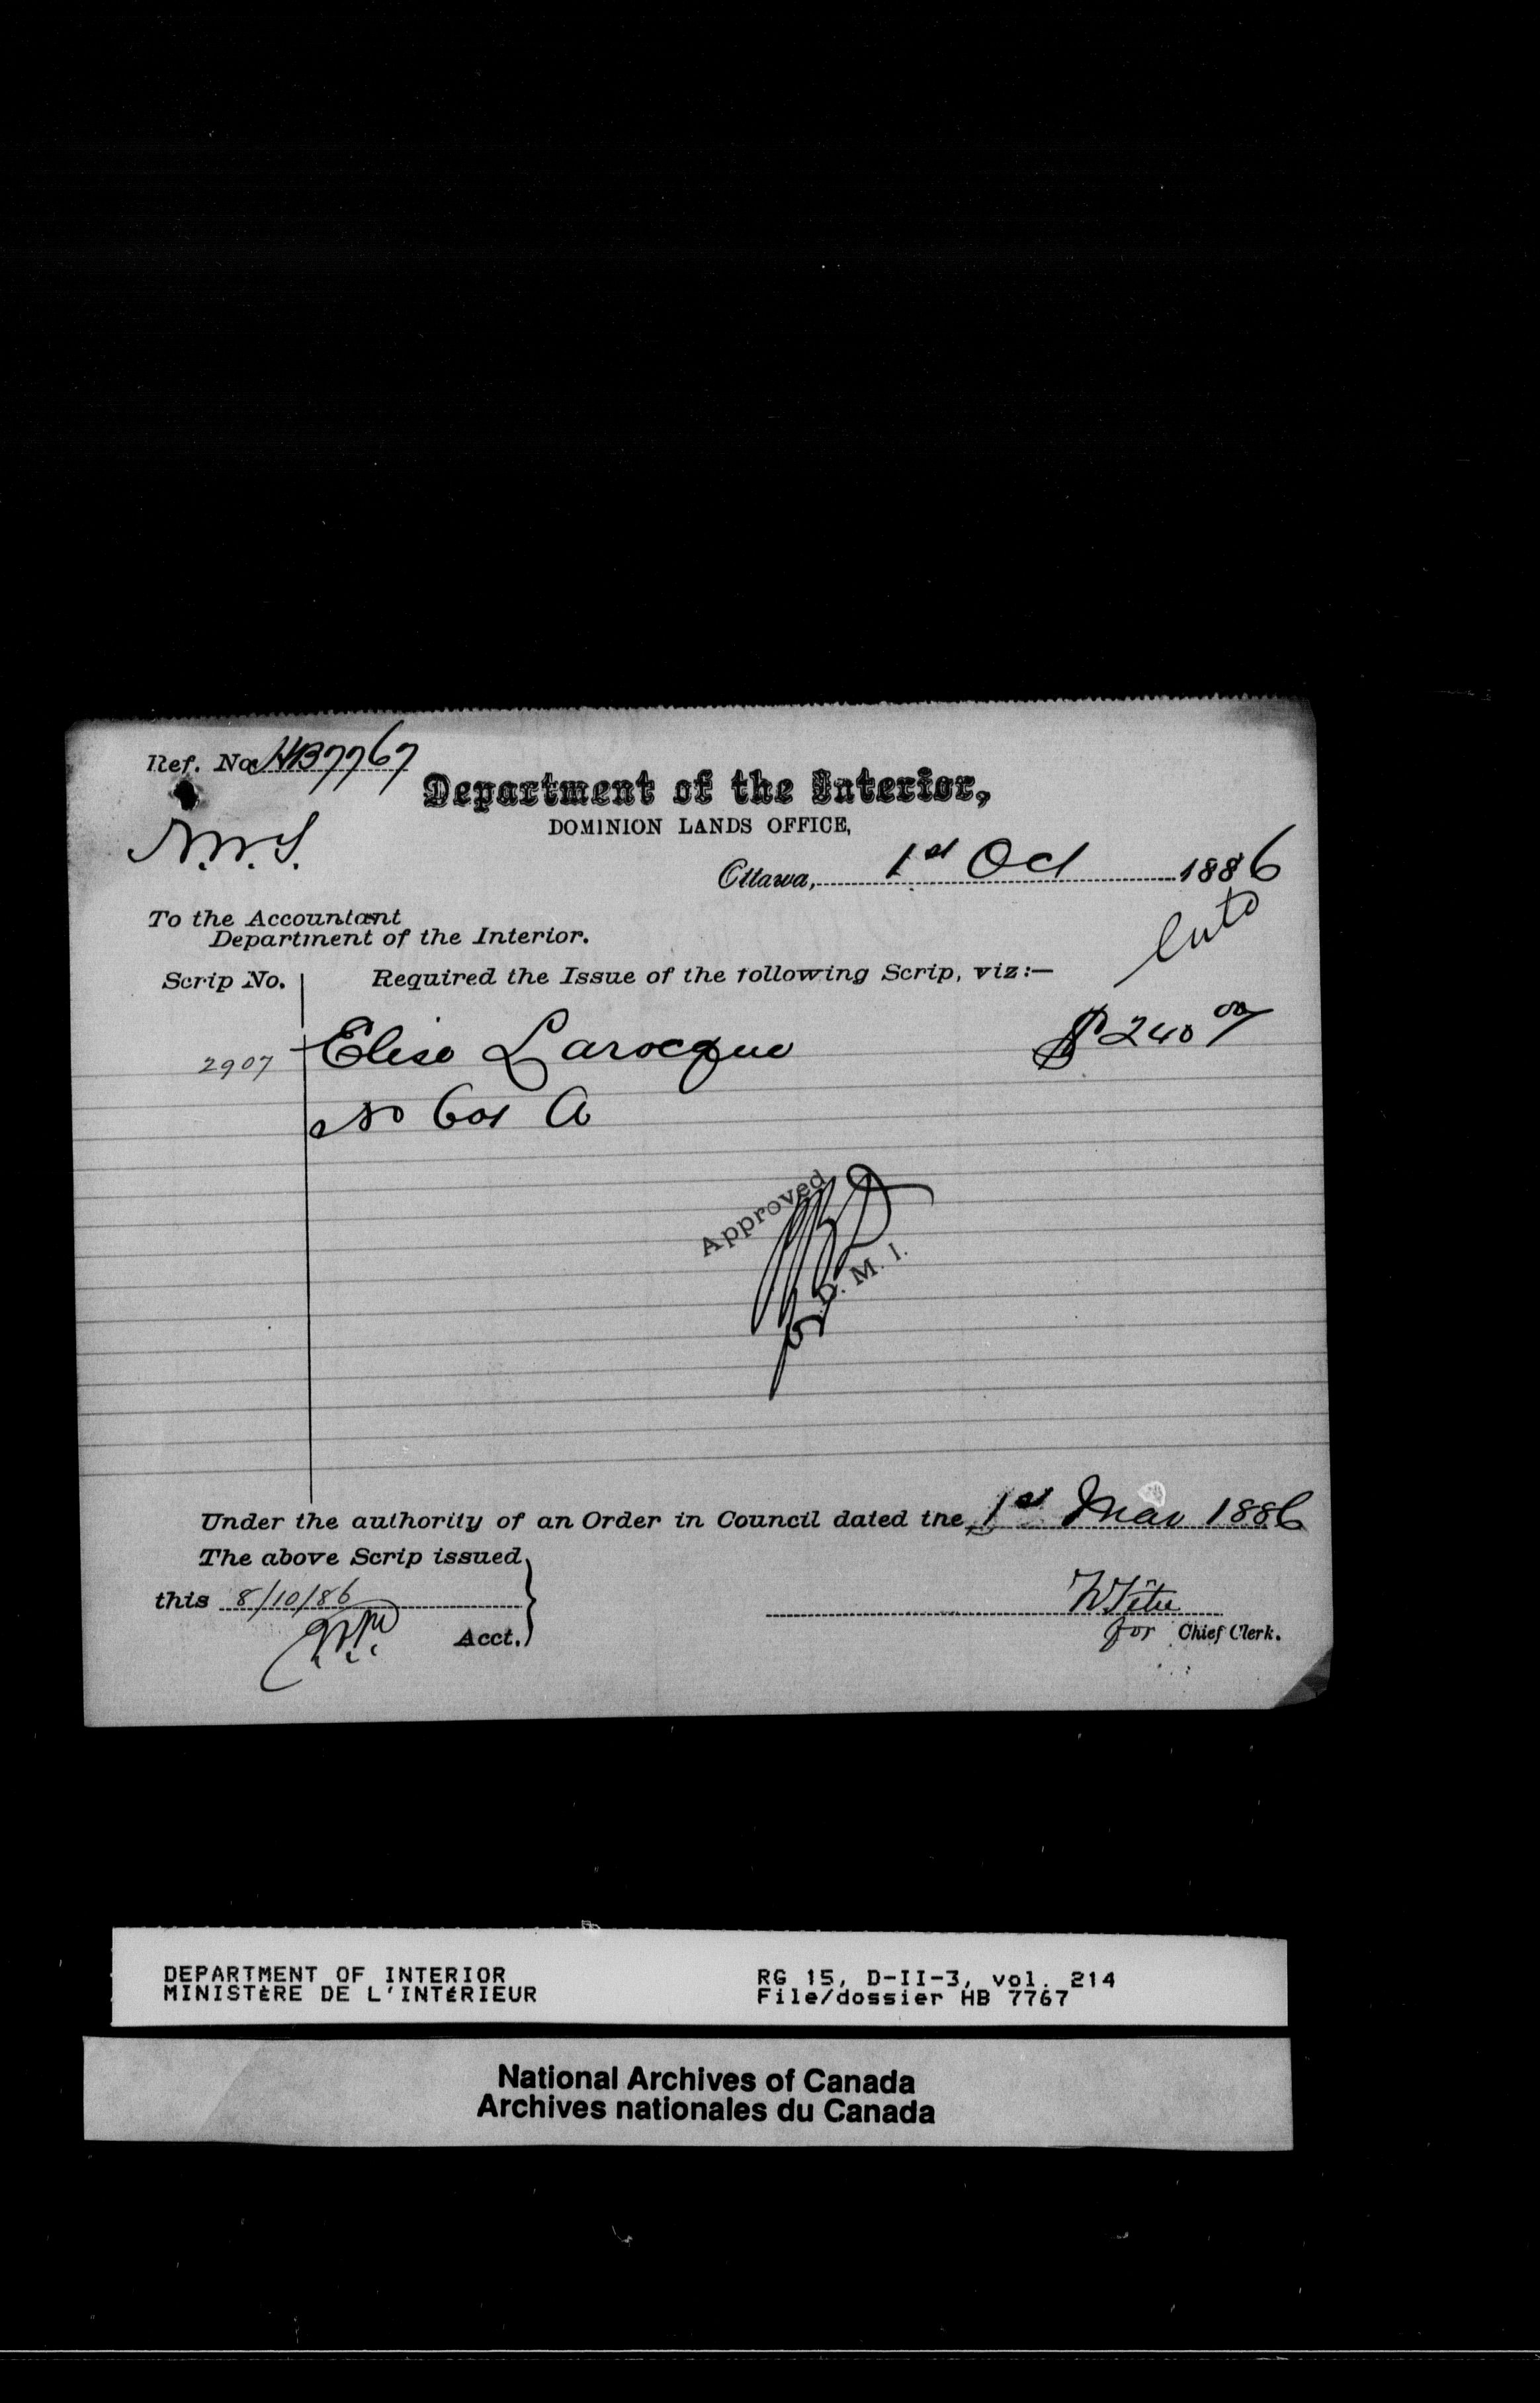 Ref. No. HB7767
Department of the Interior,
DOMINION LANDS OFFICE,
N.W.S.
Ottawa, 1st Oct 1886
To the Accountant
Department of the Interior.
Scrip No. Required the Issue of the following Scrip, viz:—
2907 Elise Larocque $240 00/
No 601 A
Approved
D. M. I.
Under the authority of an Order in Council dated the 1st Mar 1886
The above Scrip issued
this 8/10/86
Acct.
for Chief Clerk.
DEPARTMENT OF INTERIOR
MINISTÈRE DE L'INTÉRIEUR
RG 15, D-II-3, vol. 214
File/dossier HB 7767
National Archives of Canada
Archives nationales du Canada